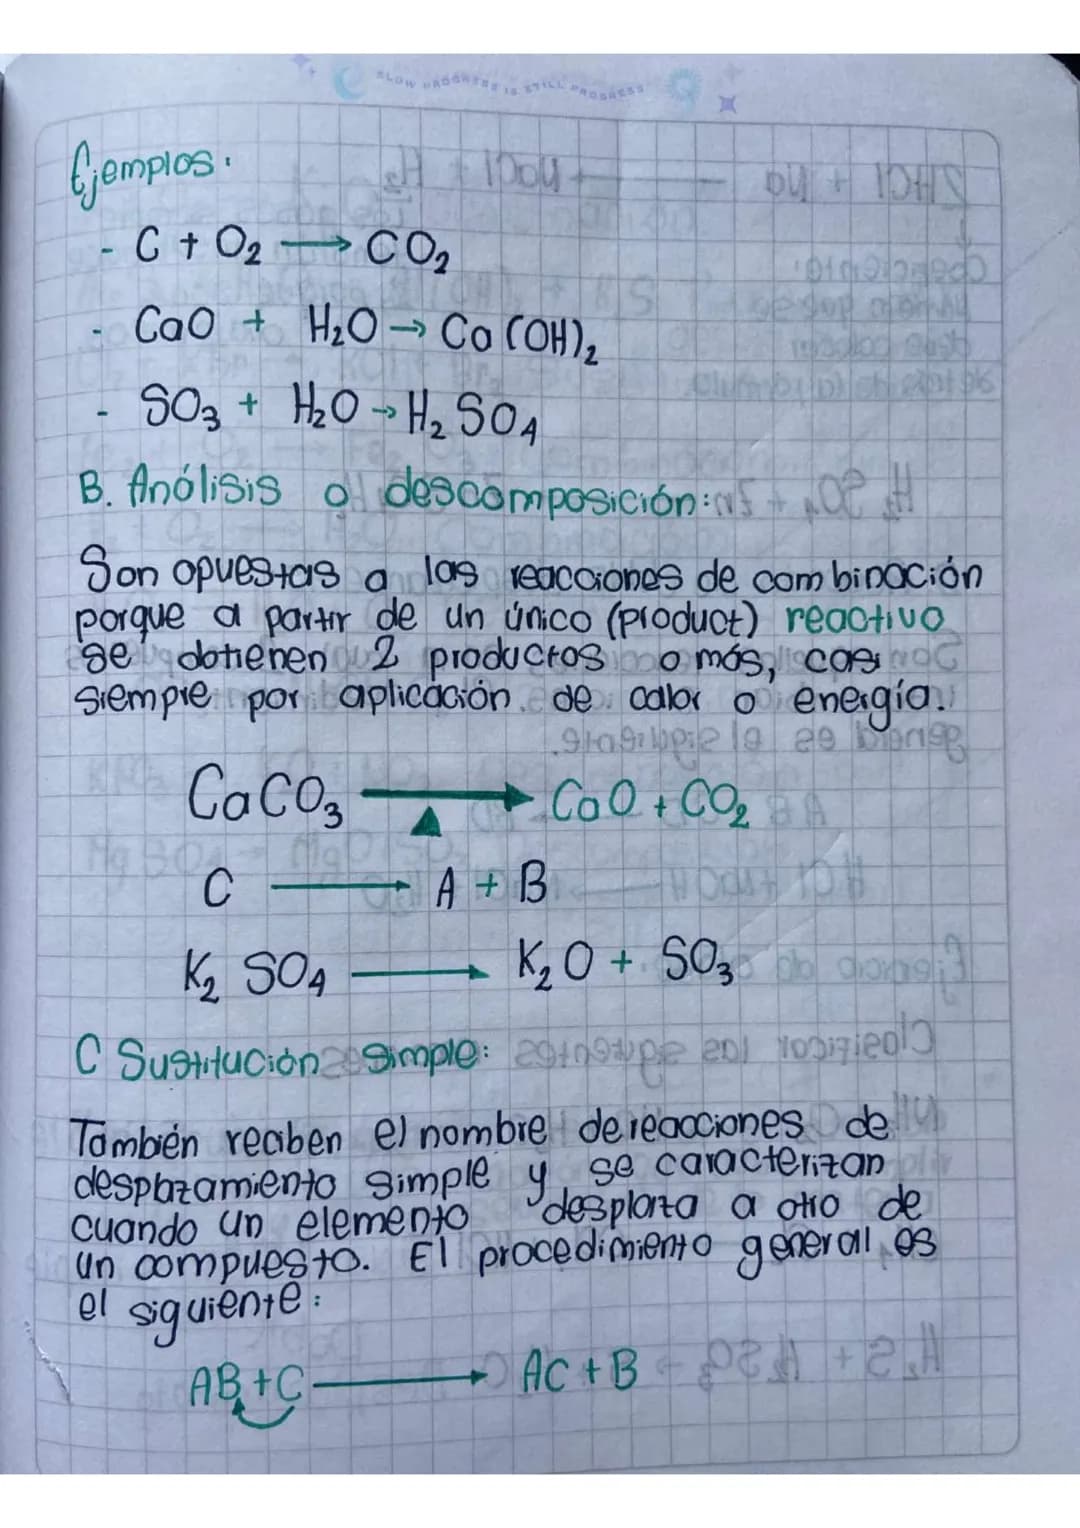 SLOW PROGRESS IS STILL PROGRESS
Ejemplos.
- C + O2 → CO2
- CaO + H2O → Ca(OH)2
- SO3 + H2O → H2SO4
B. Análisis o descomposición:
Son opuestas a las reacciones de combinación
porque a partir de un único (product) reactivo
se obtienen 2 productos o más, casi
siempre por aplicación de calor o energía.
CaCO3 → CaO + CO2
▲
C → A + B
K2 SO4 → K2O + SO3
C Sustitución simple:
También reciben el nombre de reacciones de
desplazamiento simple y se caracterizan
cuando un elemento desplaza a otro de
un compuesto. El procedimiento general es
el siguiente:
AB + C → AC + B